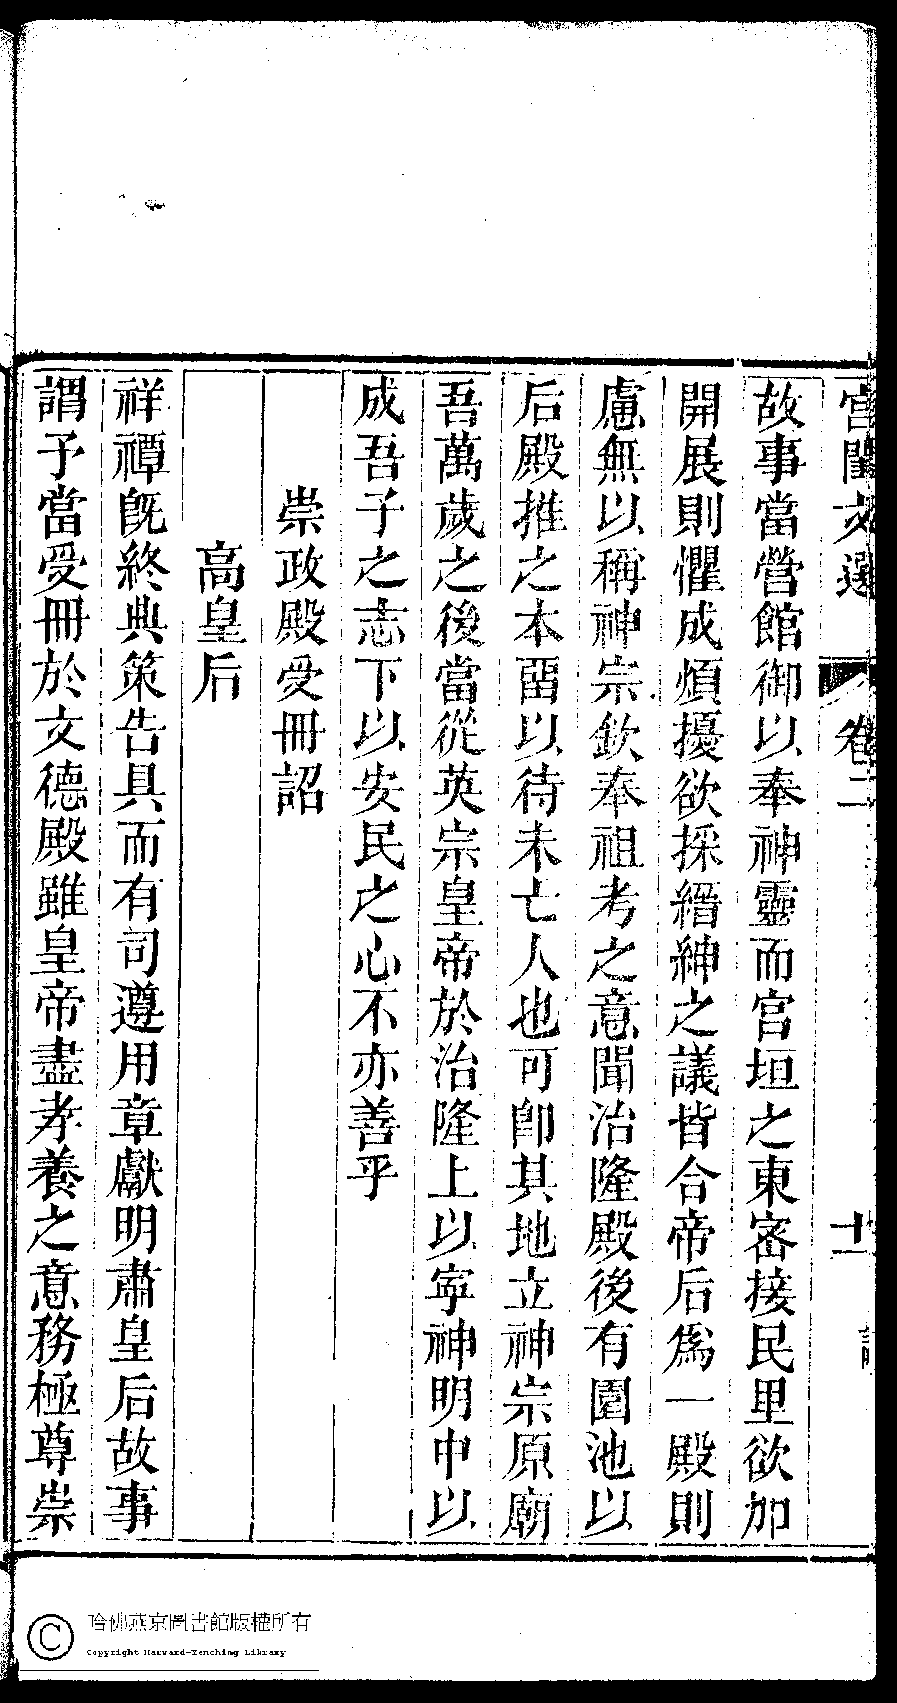 宮閨文選 卷二 十一 詔
故事當營館御以奉神靈而宮垣之東密接民里欲加
開展則懼成煩擾欲採縉紳之議皆合帝后爲一殿則
慮無以稱神宗欽奉祖考之意聞治隆殿後有園池以
后殿推之本畱以待未亡人也可卽其地立神宗原廟
吾萬歲之後當從英宗皇帝於治隆上以寧神明中以
成吾子之志下以安民之心不亦善乎
崇政殿受冊詔
高皇后
祥禫旣終典策告具而有司遵用章獻明肅皇后故事
謂予當受冊於文德殿雖皇帝盡孝養之意務極尊崇
哈佛燕京圖書館版權所有
Copyright Harvard-Yenching Library